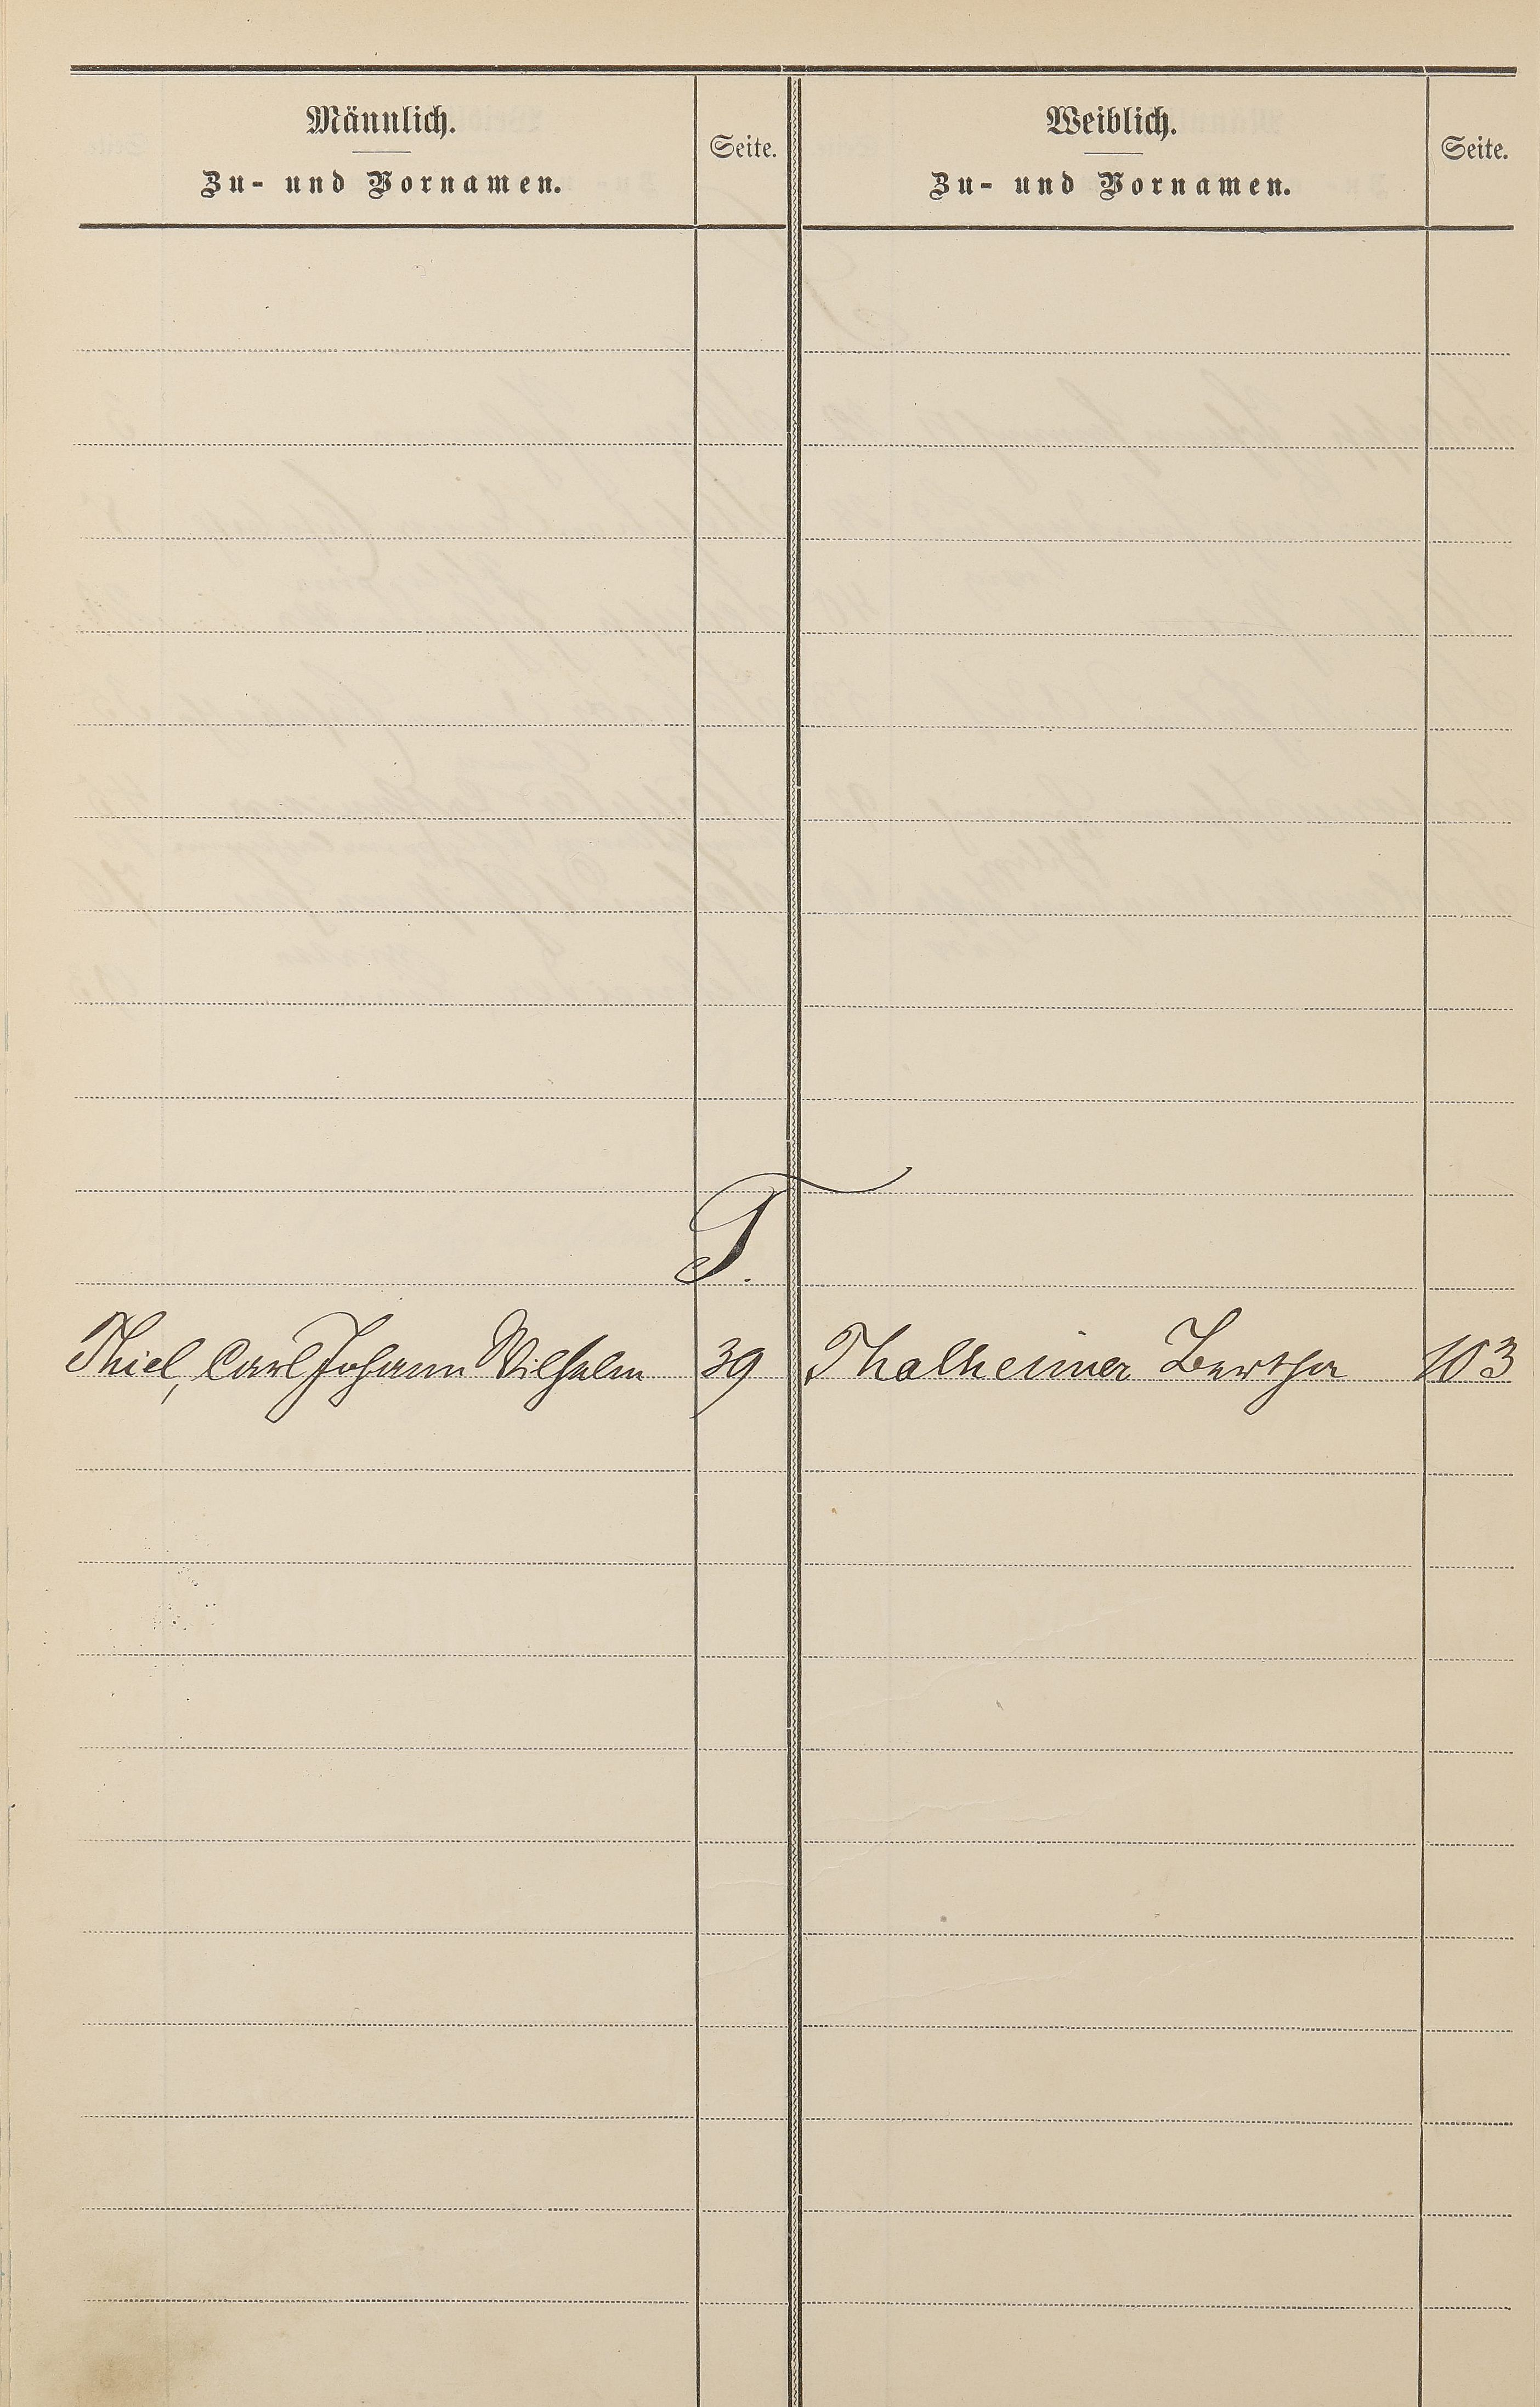 Männlich.
Zu- und Vornamen.
Seite.
Weiblich.
Zu- und Vornamen.
Seite.
T.
Thiel, Carl Johann Wilhelm 39
Thalheimer Bertha 103